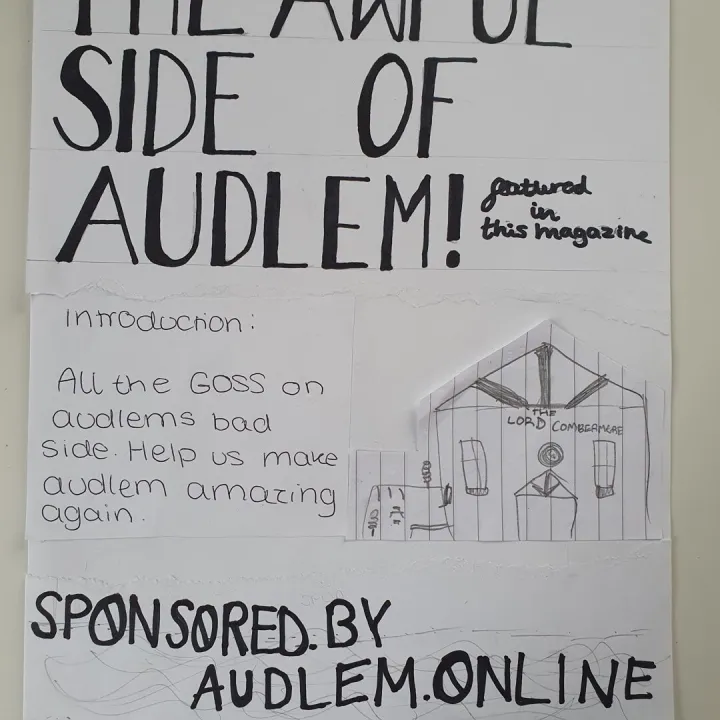 THE AWFUL
SIDE OF
AUDLEM!
featured
in
this magazine
Introduction:
All the GOSS on
audlems bad
side. Help us make
audlem amazing
again.
THE
LORD COMBERMERE
SPONSORED.BY
AUDLEM.ONLINE